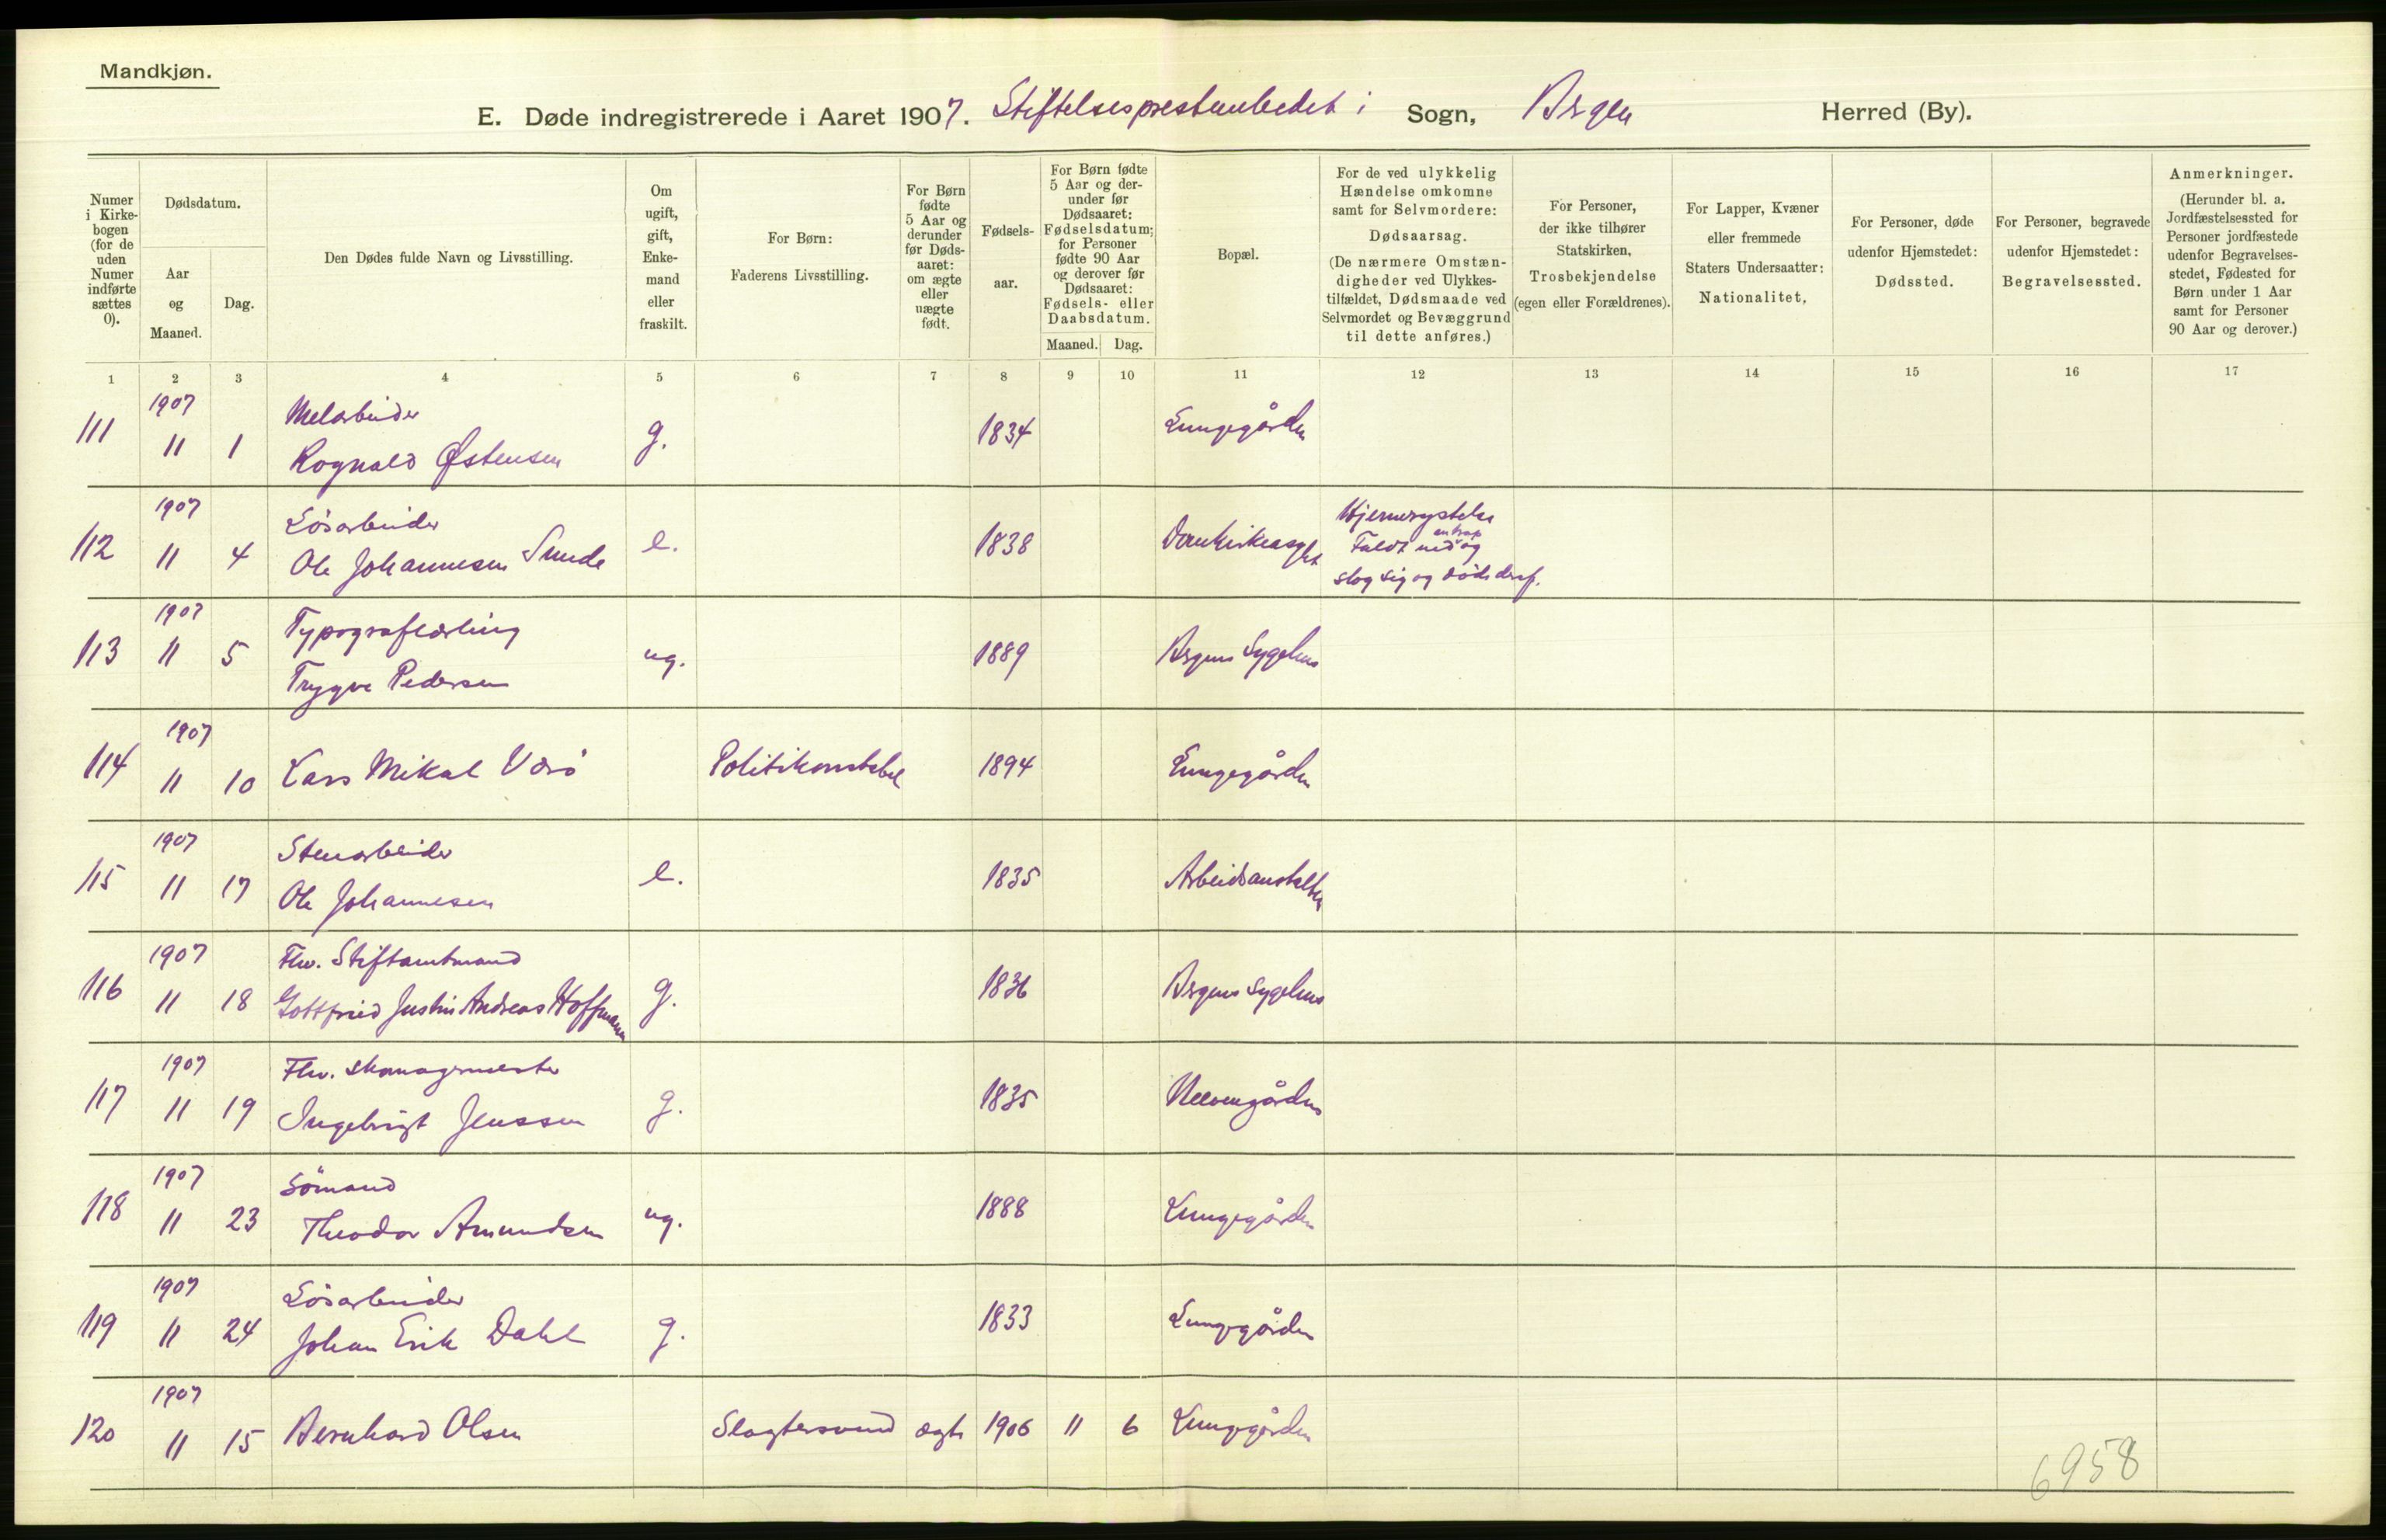 Mandkjøn.
E. Døde indregistrerede i Aaret 1907. Stiftelsesprestembedet i Sogn, Bergen Herred (By).
Numer i Kirkebogen (for de uden Numer indførte sættes 0).
Dødsdatum.
Aar og Maaned.
Dag.
Den Dødes fulde Navn og Livsstilling.
Om ugift, gift, Enkemand eller fraskilt.
For Børn: Faderens Livsstilling.
For Børn fødte 5 Aar og derunder før Dødsaaret: om ægte eller uægte født.
Fødselsaar.
For Børn fødte 5 Aar og derunder før Dødsaaret: Fødselsdatum; for Personer fødte 90 Aar og derover før Dødsaaret: Fødsels- eller Daabsdatum.
Maaned. Dag.
Bopæl.
For de ved ulykkelig Hændelse omkomne samt for Selvmordere: Dødsaarsag. (De nærmere Omstændigheder ved Ulykkestilfældet, Dødsmaade ved Selvmordet og Bevæggrund til dette anføres.)
For Personer, der ikke tilhører Statskirken, Trosbekjendelse (egen eller Forældrenes).
For Lapper, Kvæner eller fremmede Staters Undersaatter: Nationalitet,
For Personer, døde udenfor Hjemstedet: Dødssted.
For Personer, begravede udenfor Hjemstedet: Begravelsessted.
Anmerkninger. (Herunder bl. a. Jordfæstelsessted for Personer jordfæstede udenfor Begravelsesstedet, Fødested for Børn under 1 Aar samt for Personer 90 Aar og derover.)
1 2 3 4 5 6 7 8 9 10 11 12 13 14 15 16 17
1907 Melarbeider
111 11 1 Rognald Østensen g. 1834 Lungegården
1907 Løsarbeider Hjernerystelse
112 11 4 Ole Johannesen Sunde e. 1838 Faldt ned en trap og
slog sig og døde deraf.
1907 Typograflærling
113 11 5 Trygve Pedersen ug. 1889 Bergens Sygehus
1907
114 11 10 Lars Mikal Værø Politikonstabel 1894 Lungegården
1907 Stenarbeider
115 11 17 Ole Johannesen e. 1835 Arbeidsanstalten
1907 Fhv. Stiftamtmand
116 11 18 Gottfried Justin Andreas Hoffmann g. 1836 Bergens Sygehus
1907 Fhv.
117 11 19 Ingebrigt Jenssen g. 1835
1907 Sømand
118 11 23 Theodor Amundsen ug. 1888 Lungegården
1907 Løsarbeider
119 11 24 Johan Erik Dahl g. 1833 Lungegården
1907
120 11 15 Bernhard Olsen Slagtersvend ægte 1906 11 6 Lungegården
6958